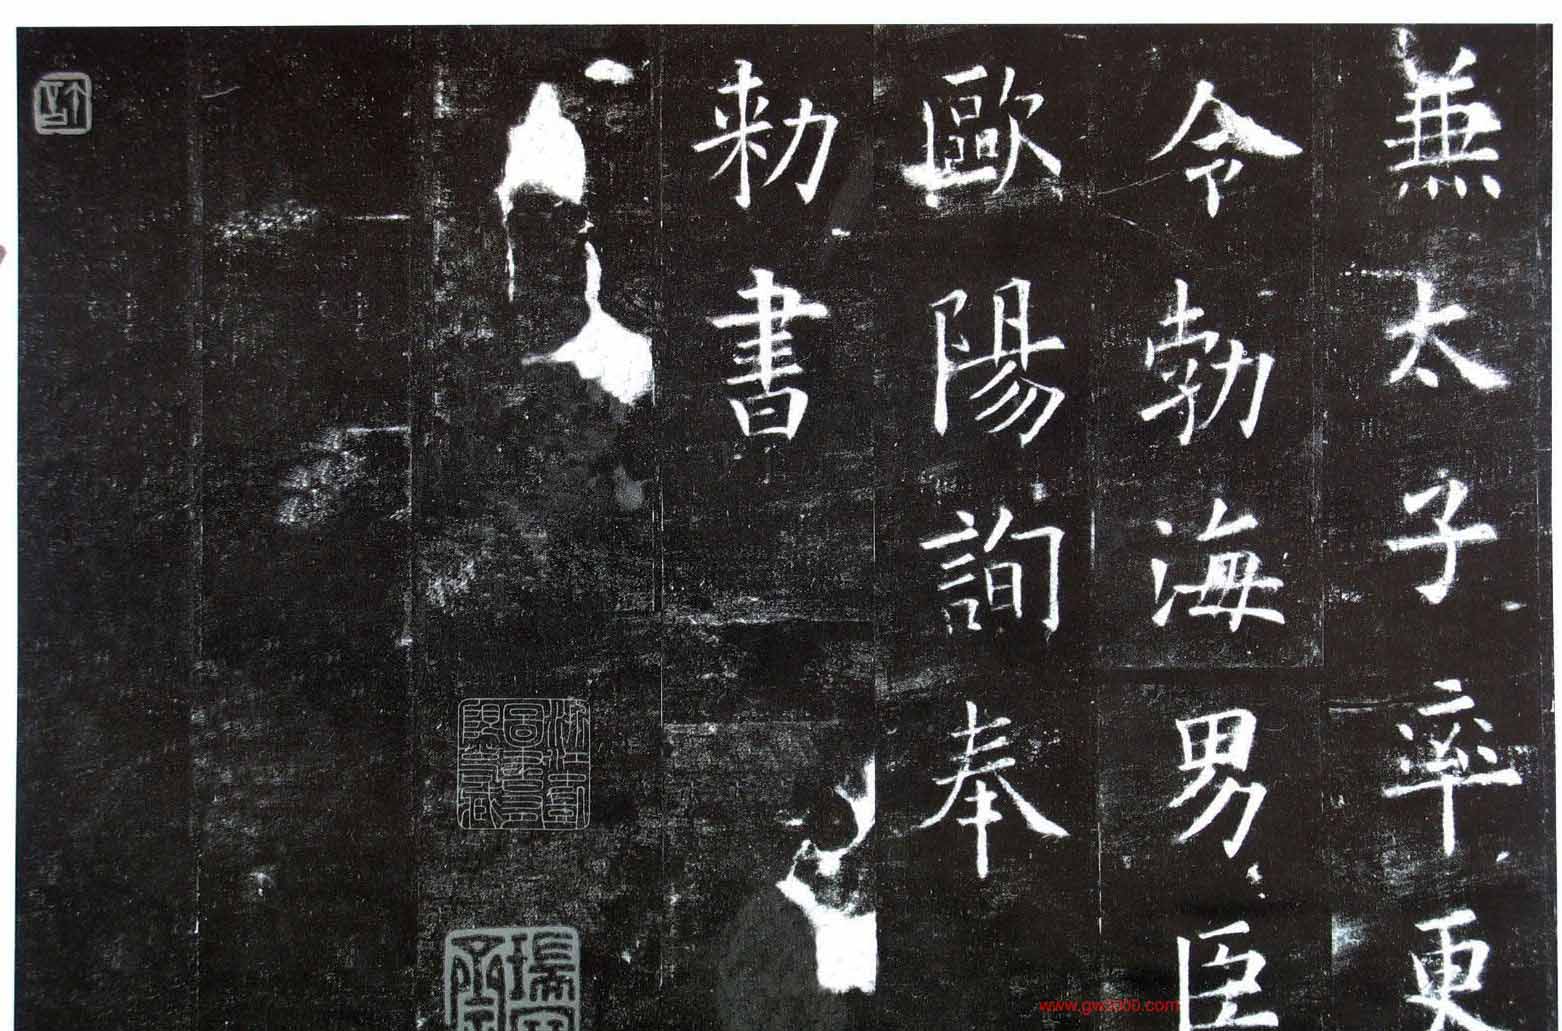 兼太子率更
令勃海男臣
歐陽詢奉
勑書
www.gw2000.com